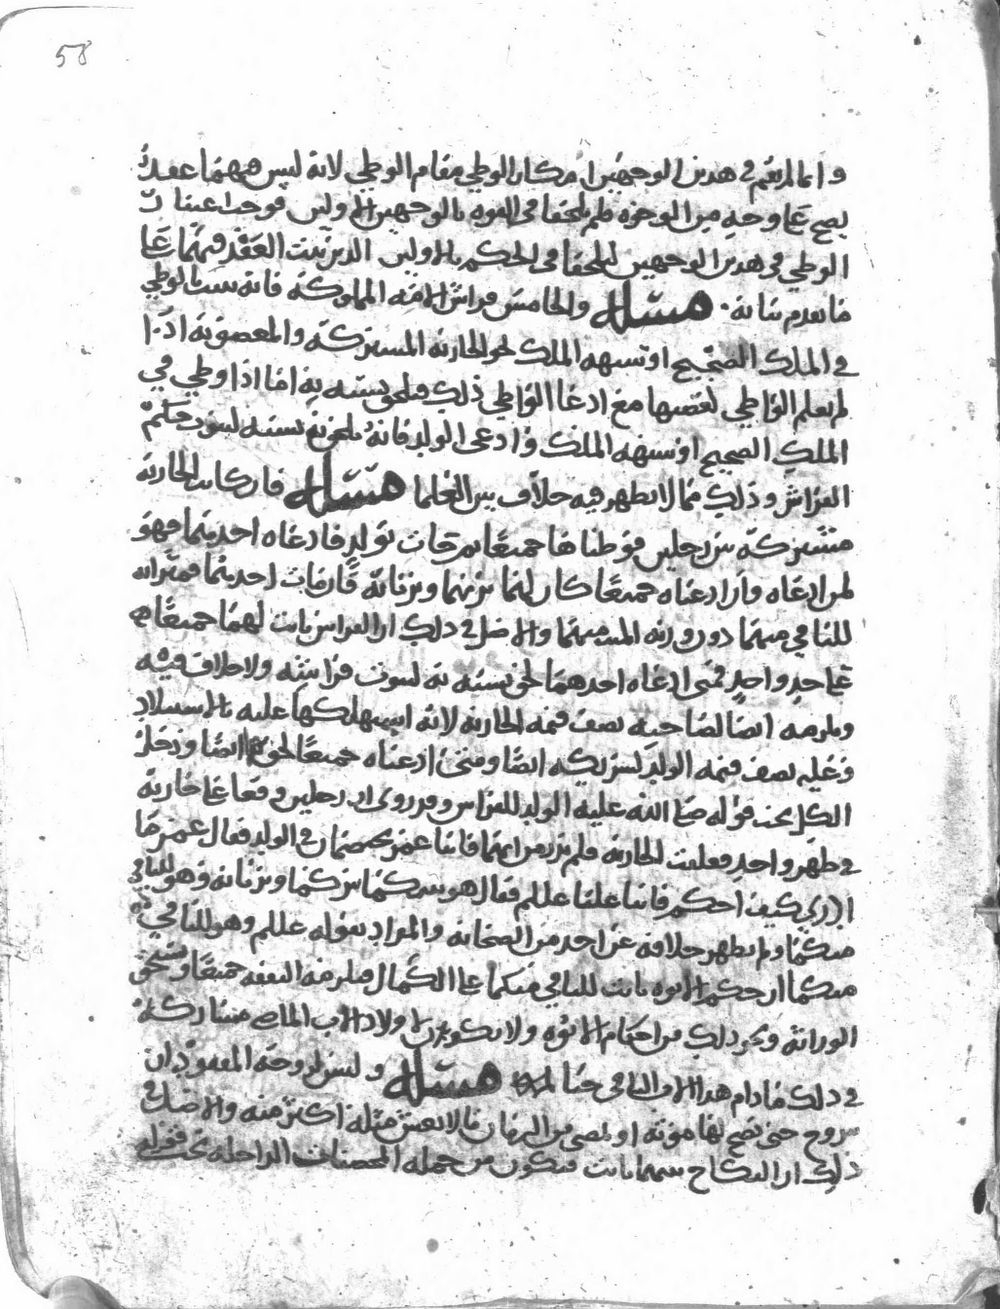 58
وانما لم نقم في هذين الوجهين امكان الوطي مقام الوطي لانه ليس ههنا عقد
يصح على وجه من الوجوه فلم يلحقا في القوه بالوجهين الاولين فوجب اعتبار
الوطي في هذين الوجهين ليلحقا في الحكم بالاولين الذين يثبت العقد فيهما على
ما تقدم بيانه مسئلة والخامس فراش الامه المملوكة فانه يثبت بالوطي
في الملك الصحيح او شبهه الملك نحو الجاريه المشتركة والمغصوبة اذا
لم يعلم الواطي لغصبها مع ادعا الواطي ذلك فيلحق نسبه به اما اذا وطي في
الملك الصحيح او شبهه الملك وادعى الولد فانه يلحق به نسبه لثبوت حكم
الفراش وذلك مما لا يظهر فيه خلاف بين العلما مسئلة فان كانت الجاريه
مشتركة بين رجلين فوطئاها جميعا ثم جات بولد فادعاه احدهما فهو
لمن ادعاه وان ادعياه جميعا كان ابنهما يرثهما ويرثانه فان مات احدهما فميراثه
للباقي منهما دون ورثه الميت منهما والاصل في ذلك ان الفراش ثابت لهما جميعا
على حد واحد فمتى ادعاه احدهما لحق نسبه به لثبوت فراشه ولا خلاف فيه
ويلزمه ايضا لصاحبه نصف قيمه الجاريه لانه استهلكها عليه بالاستيلاد
وعليه نصف قيمه الولد لشريكه ايضا ومتى ادعياه جميعا لحق بهما ايضا ودخل
الكل تحت قوله صلى الله عليه الولد للفراش وقد روي ان رجلين وقعا على جاريه
في طهر واحد فعلقت الجاريه فلم يدر من ايهما فاتيا عمر يختصمان في الولد فقال عمر ما
ادري كيف احكم فاتيا عليا عللم فقال هو بينكما يرثكما وترثانه وهو للباقي
منكما ولم يظهر خلافه عن احد من الصحابه والمراد بقوله علللم وهو للباقي
منكما ان حكم الابوه ثابت للباقي منكما على الكمال فيلزمه النفقه جميعا ويستحق
الوراثة ونحو ذلك من احكام الابوه ولا يكون لاولاد الاب الماضي مشاركة
في ذلك ما دام هذا الاب الباقي حيا مسئلة وليس لزوجه المفقود ان
تتزوج حتى تصح لها موته او يمضي من الزمان ما لا يعيش مثله اكثر منه والاصل في
ذلك ان النكاح بينهما ثابت فتكون من جمله المحصنات الداخله تحت قوله